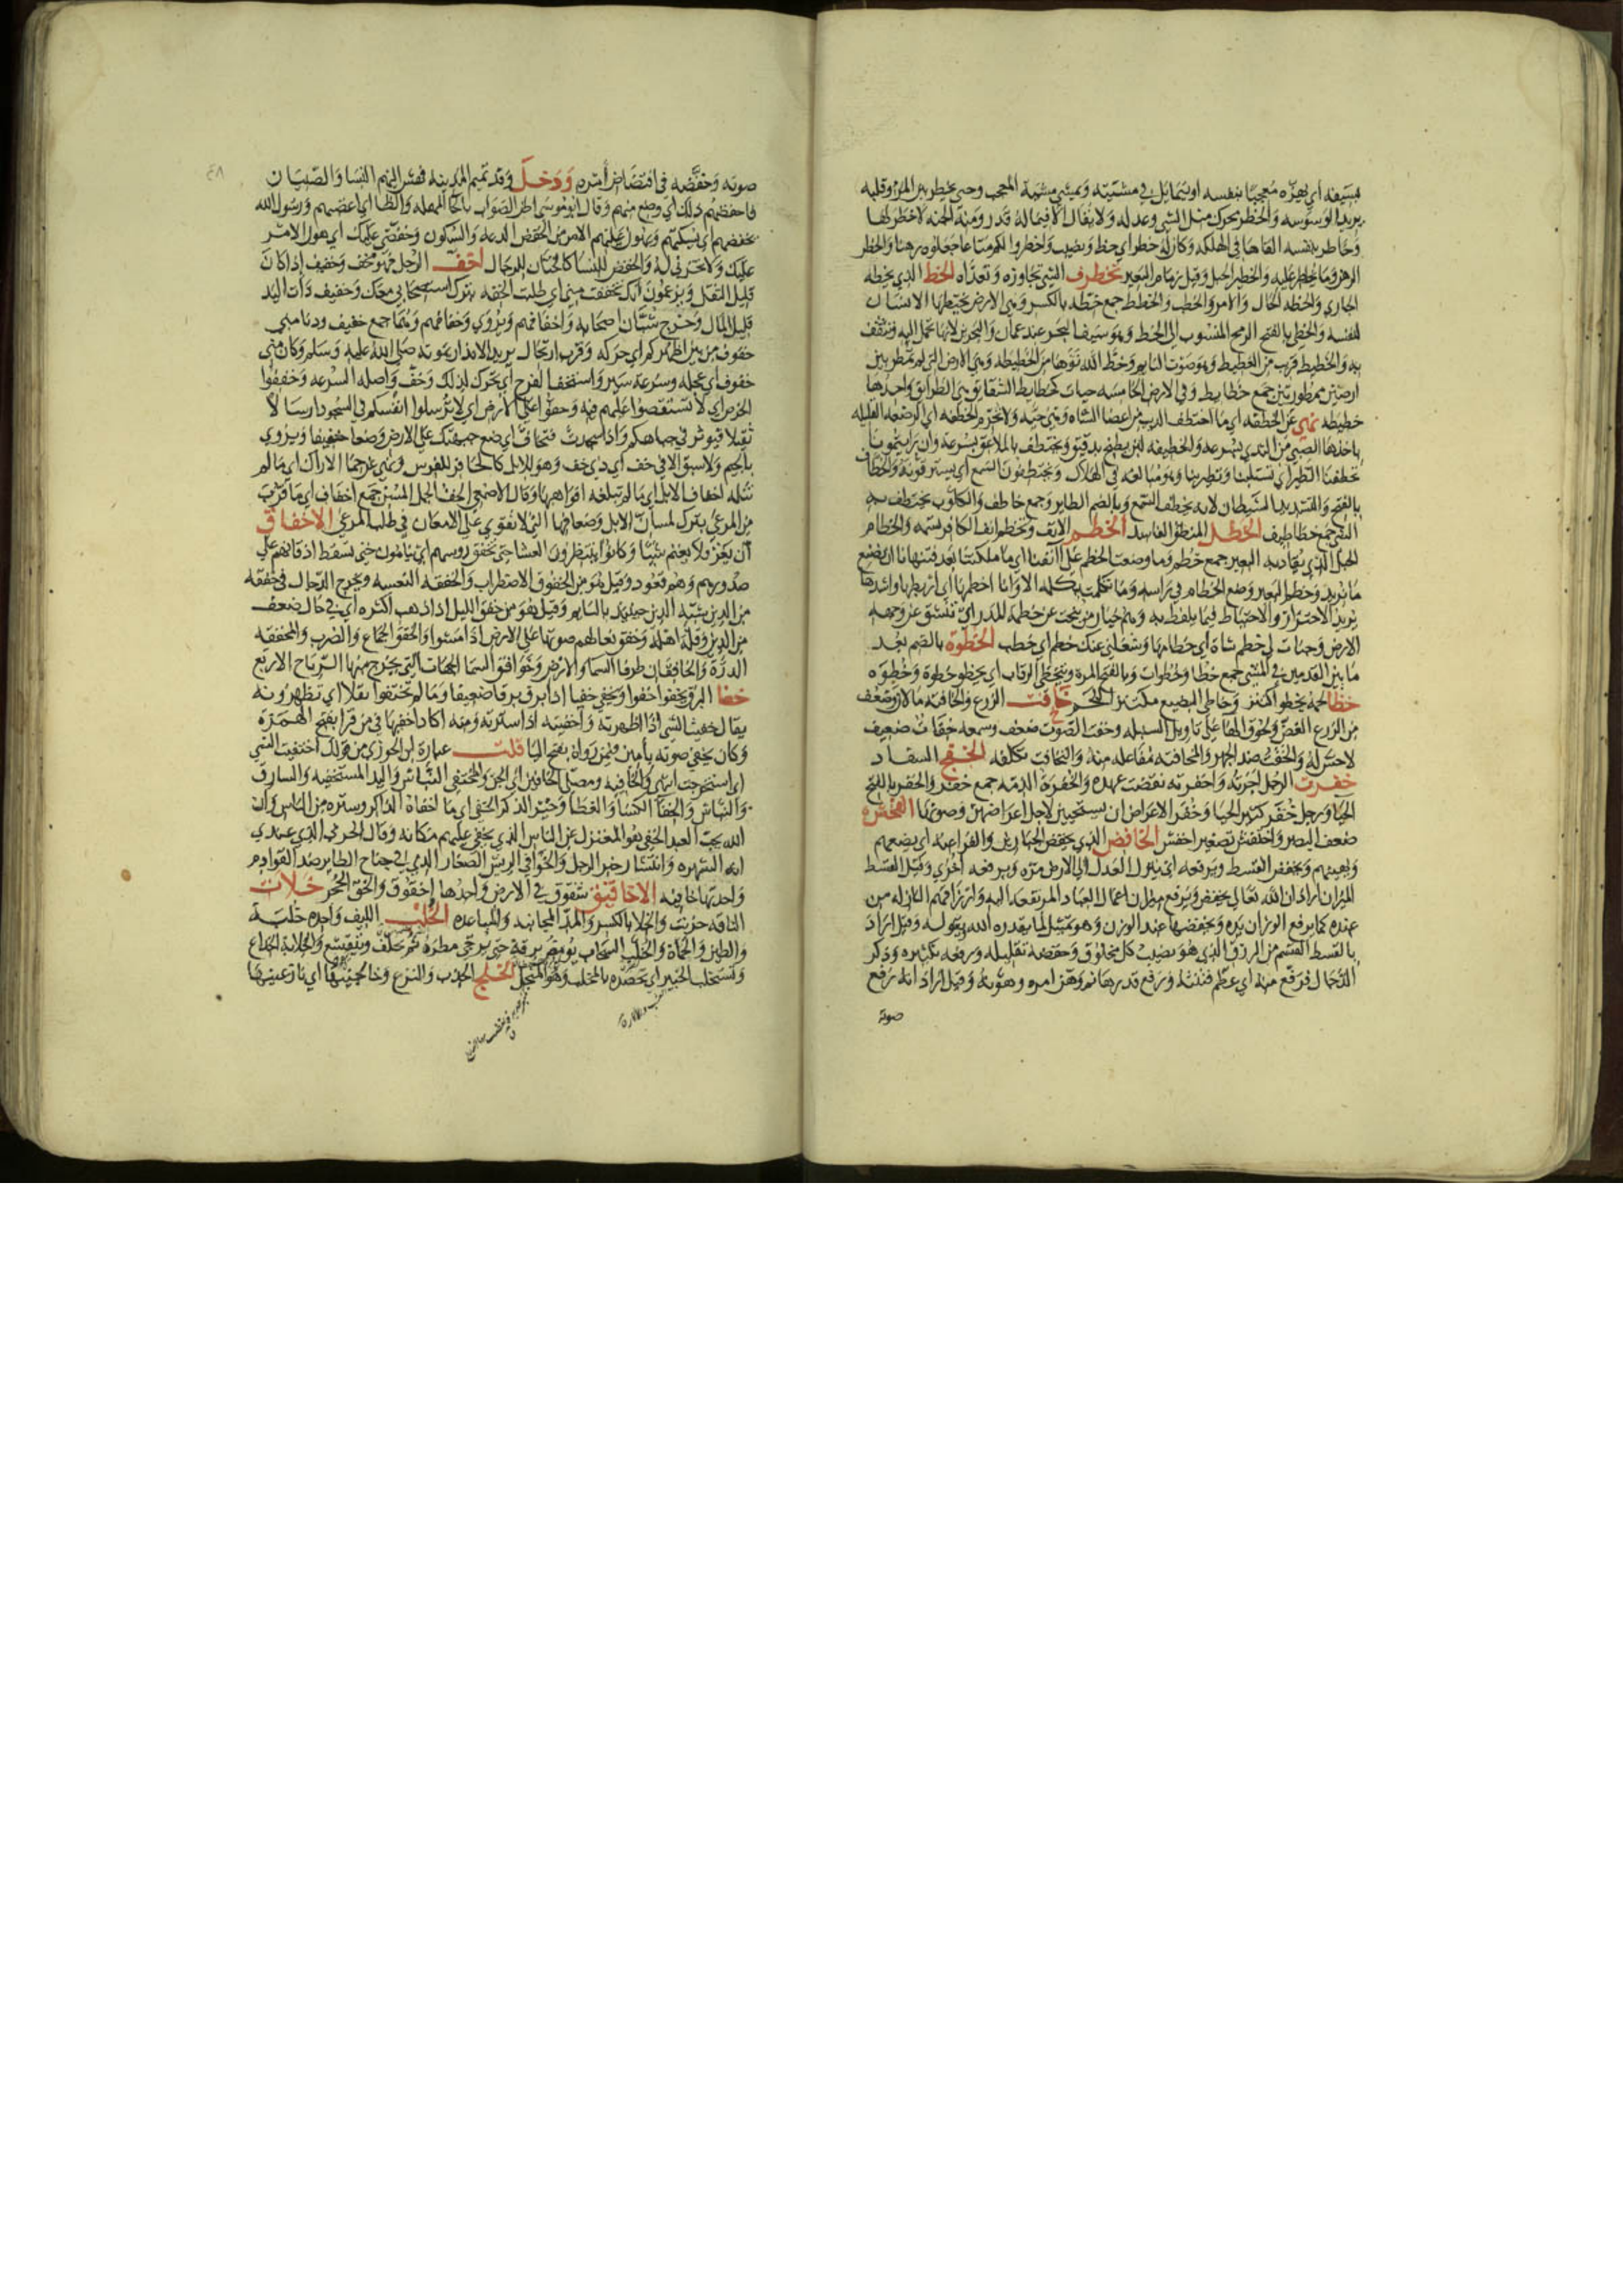 بسيفه أي يهزه معجبا بنفسه او يتمايل في مشيته ويمشي مشية المعجب وحتى يخطر بين المرء وقلبه
يريد الوسوسه والخطر بحرك مثل الشي وعدله ولا يقال الا فيما له قدر ومنه الجنه لا خطر لها
وخاطر بنفسه القاها في الهلكه وكان له خطر اي حظ ونصيب واخطروا لكم متاعا جعلوه رهنا والخطر
الرهن وما يخاطر عليه والخطير الحبل وقيل زمام البعير تخطرف الشي تجاوزه وتعداه الخط الذي يخطه
الجاري والخطه الحال والامر والخطب والخطط جمع خطه بالكسر وهي الارض يختطها الانسان
لنفسه والخطي بالفتح الرمح المنسوب الى الخط وهو سيف البحر عند عمان والبحرين لانها تحمل اليه وتثقف
به والخطيط قريب من الغطيط وهو صوت النايم وخط الله نوها من الخطيطه وهي الارض التي لم تمطر بين
ارضين ممطورتين جمع خطايط وفي الارض الخامسه حيات كخطايط الشقايق هي الطرايق واحدها
خطيطه نهي عن الخطفه اي ما اختطف الذيب من اعضا الشاه وهي حيه ولا تحرم الخطفه اي الرضعه القليله
ياخذها الصبي من الثدي بسرعه والخطيفه لبن يطبخ بدقيق ويختطف بالملاعق بسرعه وان رايتمونا
تخطفنا الطير اي تستلبنا وتطير بنا وهو مبالغه في الهلاك ويختطفون السمع اي يسترقونه والخطاف
بالفتح والتشديد الشيطان لانه يخطف السمع وبالضم الطاير وجمع خاطف والكلوب يختطف به
الشي جمع خطاطيف الخطل المنطق الفاسد الخطم الانف وتخطم انف الكافر تسمه والخطام
الحبل الذي يقاد به البعير جمع خطم وما وضعت الخطم على انفنا اي ما ملكتنا بعد فتنهانا ان نصنع
ما نريد وخطم البعير وضع الخطام في راسه وما تكلمت بكلمه الا وانا اخطمها اي اربطها واشدها
يريد الاحتراز والاحتياط فيما يلفظ به
الارض وحبات له خطم شاة اي خطامها وشغلني عنك خطم اي خطب الخطوة بالضم بعد
ما بين القدمين في المشي جمع خطا وخطوات وبالفتح المرة ويتخطى الرقاب اي يخطو خطوة وخطوه
خظا لحمه يخظوا اكتنز وخاظي البضيع مكتنز اللحم خافت الزرع والخافته ما لان وضعف
من الزرع الغض ولحوق الها على تاويل السنبله وخفت الصوت ضعف وسمعه خفات ضعيف
لا حس له والخفت ضد الجهر والمخافته مفاعله منه والتخافت تكلفه الخفج السفاد
خفرت الرجل اجرته واخفرته نقضت عهده والخفرة الذمه جمع خفر والخفر بالفتح
الحيا ورجل خفر كثير الحيا وخفر الاعراض ان يستحيين لاجل اعراضهن وصونها الخفش
ضعف البصر واخيفش تصغير اخفش الخافض الذي يخفض الجبارين والفراعنه اي يضعهم
ويهينهم ويخفض القسط ويرفعه اي ينزل العدل الى الارض مرة ويرفعه اخرى وقيل القسط
الميزان اراد ان الله تعالى يخفض ويرفع ميزان اعمال العباد المرتفعه اليه وارزاقهم النازله من
عنده كما يرفع الوزان يده ويخفضها عند الوزن وهو تمثيل لما يقدره الله وينزله وقيل اراد
بالقسط القسم من الرزق الذي هو نصيب كل مخلوق وخفضه تقليله ورفعه تكثيره وذكر
الدجال فرفع منه اي عظم فتنته ورفع قدرها ثم وهن امره وهونه وقيل اراد انه رفع
صوته
٤٨
صوته وخفضه في اقتصاص امره ودخل وفد تميم المدينه فهش اليهم النسا والصبيان
فاخفظهم ذلك اي وضع منهم وقال ابو موسى اظن الصواب بالحا المهمله والظا اي اغضبهم ورسول الله
يخفضهم اي يسكنهم ويهون عليهم الامر من الخفض الدعه والسكون وخفضي عليك اي هوني الامر
عليك ولا تحزني له والخفض للنسا كالختان للرجال اخف الرجل فهو مخف وخفيف اذا كان
قليل الثقل ويزعمون انك تخففت مني اي طلبت الخفه بترك استصحابي معك وخفيف ذات اليد
قليل المال وخرج شبان اصحابه واخفافهم ويروي وخفافهم وهما جمع خفيف ودنا مني
خفوف من بين اظهركم اي حركه وقرب ارتحال يريد الانذار بموته صلى الله عليه وسلم وكان مني
خفوف اي عجله وسرعة سير واستخف الفرح اي تحرك لذلك وخف واصله السرعه وخففوا
الخرص اي لا تستقصوا عليهم فيه وخفوا على الارض اي لا ترسلوا انفسكم في السجود ارسالا
ثقيلا فيوثر في جباهكم واذا سجدت فتخاف اي ضع جبهتك على الارض وضعا خفيفا ويروي
بالجيم ولا سبق الا في خف اي ذي خف وهو للابل كالحافر للفرس ونهي عن حمى الاراك اي ما لم
تنله اخفاف الابل اي ما لم تبلغه افواهها وقال الاصمعي الخف الجمل المسن جمع اخفاف اي ما قرب
من المرعى يترك لمسان الابل وضعافها التي لا تقوى على الامعان في طلب المرعى الاخفاق
ان يغزو ولا يغنم شيا وكانوا ينتظرون العشا حتى تخفق روسهم اي ينامون حتى تسقط اذقانهم على
صدورهم وهم قعود وقيل هو من الخفوق الاضطراب والخفقه النعسه ويخرج الدجال في خفقه
من الدين
من الدين وقلة اهله وخفق نعالهم صوتها على الارض اذا مشوا والخفق الجماع والضرب والمخفقه
الدرة والخافقان طرفا السما والارض وخوافق السما الجهات التي يخرج منها الرياح الاربع
خفا البرق يخفوا خفوا ويخفي خفيا اذا برق برقا ضعيفا وما لم تختفوا بقلا اي تظهرونه
يقال خفيت الشي اذا اظهرته واخفيته اذا سترته ومنه اكاد اخفيها في من قرا بفتح الهمزة
وكان يخفي صوته بامين فيمن رواه بفتح اليا قلت عبارة ابن الجوزي من قولك اختفيت الشي
اي استخرجت انتهى والخافيه ومصلى الخافين اي الجن والمختفي النباش واليد المستخفيه والسارق
والنباش والخفا الكسا والغطا وخير الذكر الخفي اي ما اخفاه الذاكر وستره من الناس وان
الله يحب العبد الخفي هو المعتزل عن الناس الذي يخفي عليهم مكانه وقال الحربي الذي عندي
انه الشهره وانتشار خبر الرجل والخوافي الريش الصغار الذي في جناح الطاير ضد القوادم
واحدتها خافيه الاخاقيق شقوق في الارض واحدها اخقوق والخق الجحر خلات
الناقه حرنت والخلا بالكسر والمد المجانبه والمباعده الخلب الليف واحده خلبه
والطين والحماة والخلب السحاب يومض برقه حتى يرجى مطره ثم يخلف ويتقشع والخلابه الخداع
ونستخلب الخبير اي نحصده بالمخلب وهو المنجل الخلج الجذب والنزع وخالجنيها اي نازعنيها